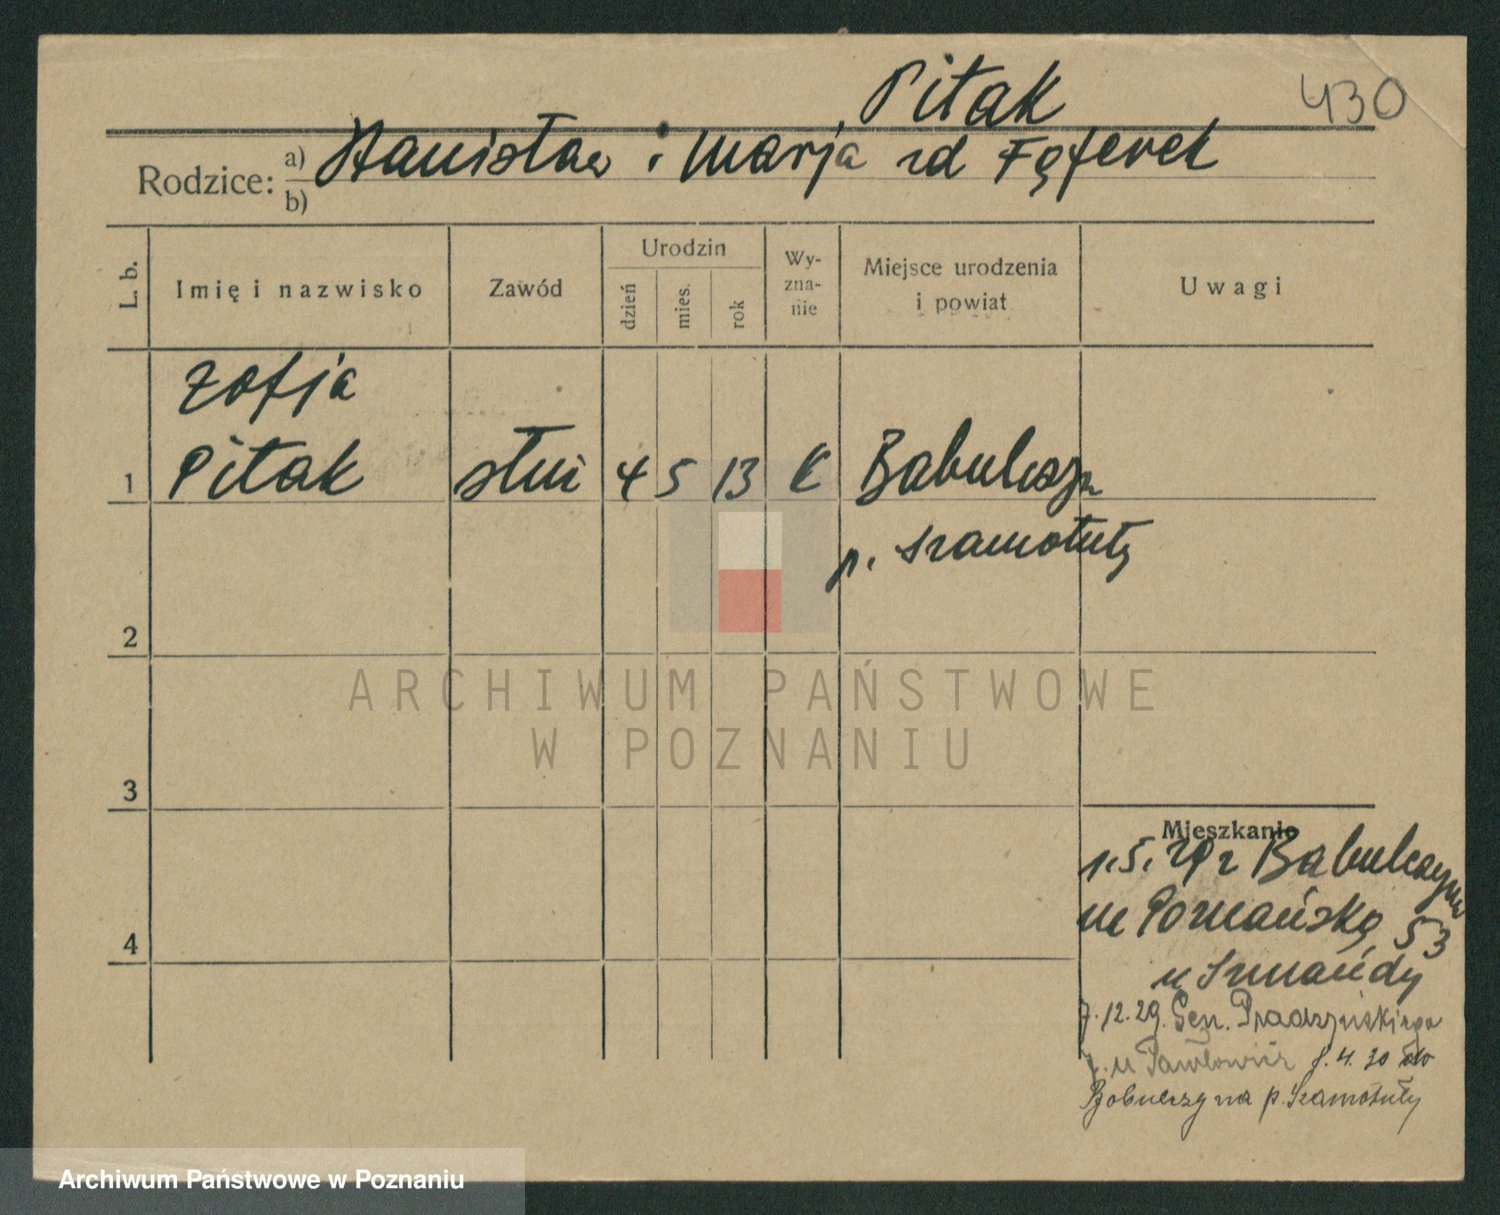 Pitak
430
Rodzice: a) Stanisław i Marja zd Fąferek
b)
L. b.
Imię i nazwisko
Zawód
Urodzin
dzień
mies.
rok
Wy-
zna-
nie
Miejsce urodzenia
i powiat
Uwagi
Zofja
1 Pitak służ 4 5 13 k Babulczyn
p. Szamotuły
2
ARCHIWUM PAŃSTWOWE
W POZNANIU
3
Mieszkanie
1.5.29 z Babulczyna
Poznańska 53
u
4
7.12.29. Gen. Prądzyńskiego
u 8.4.30 do
Bobulczyna p. Szamotuły
Archiwum Państwowe w Poznaniu